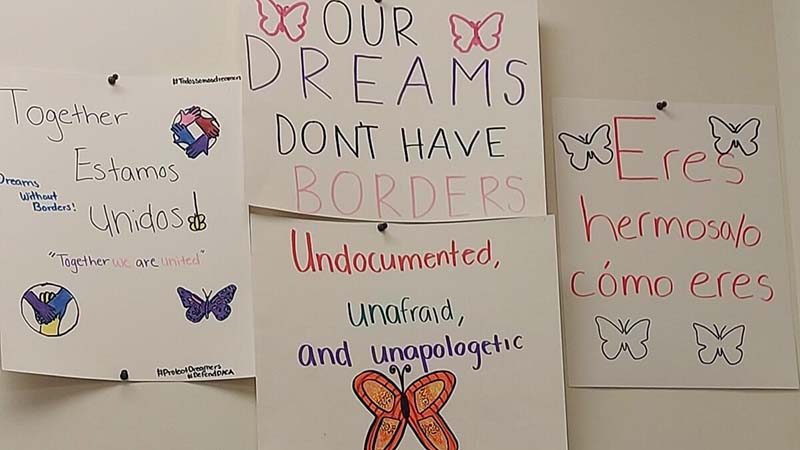 #Todossomosdreamers
Together
Estamos
Unidos!
Dreams
Without
Borders!
"Together we are united"
#ProtectDreamers
#DefendDACA
OUR
DREAMS
DONT HAVE
BORDERS
Undocumented,
unafraid,
and unapologetic
Eres
hermosa/o
cómo eres